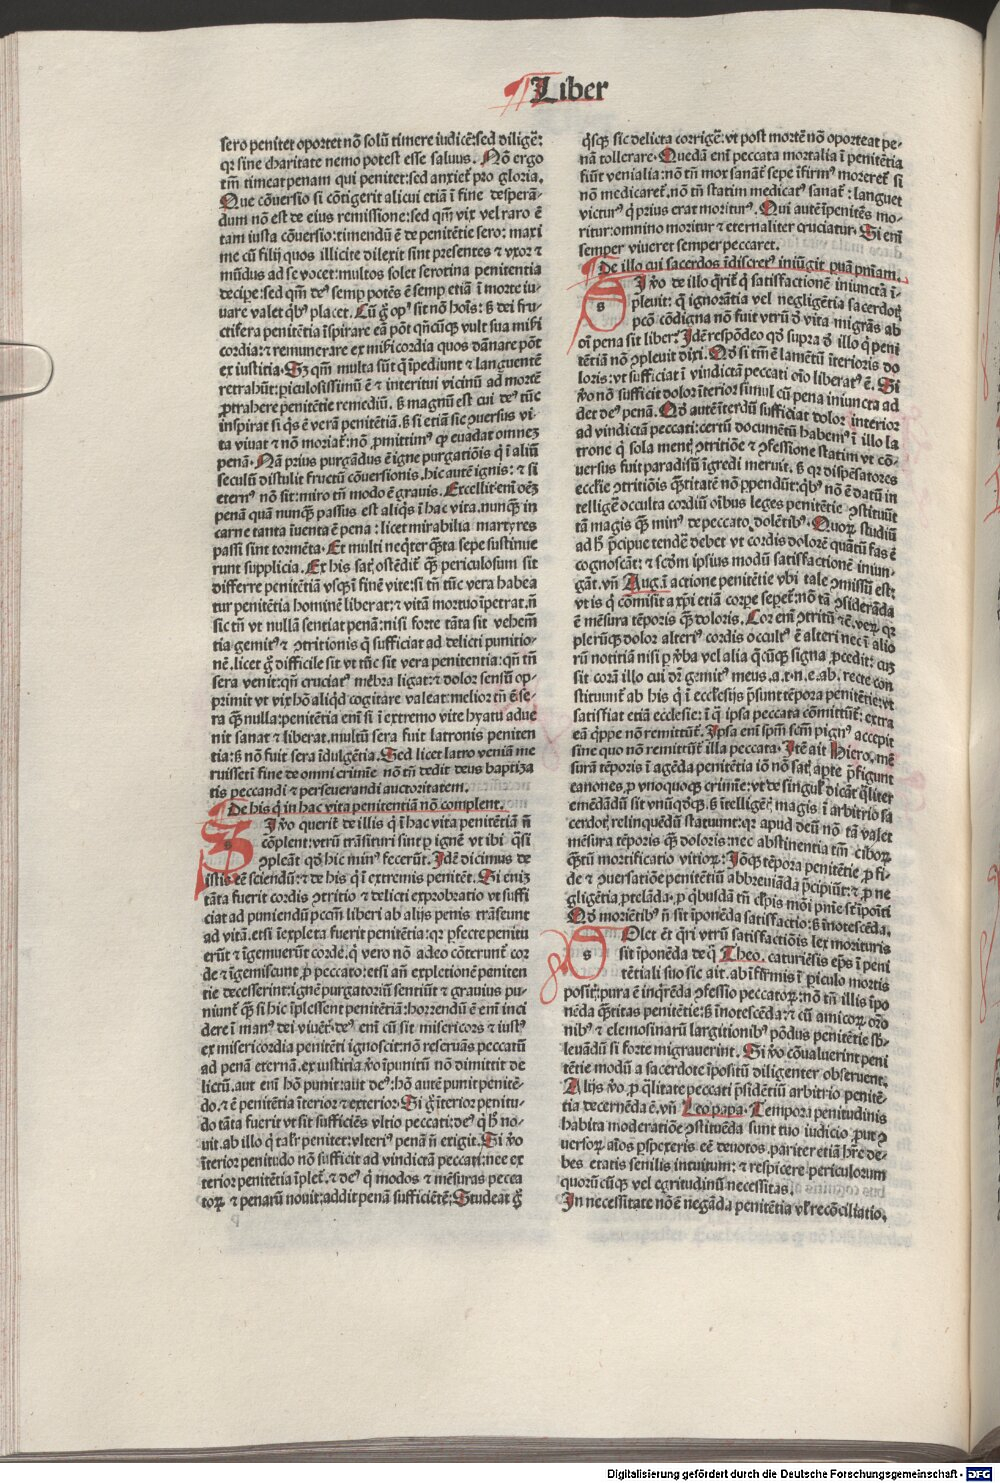 Liber
sero penitet oportet nõ solũ timere iudicẽ: sed diligẽ:
qꝛ sine charitate nemo potest esse saluus. Nõ ergo
tm̃ timeat penam qui penitet: sed anxiet᷑ pro gloria.
Que cõuersio si cõtigerit alicui etiã ĩ fine desperã-
dum nõ est de eius remissione: sed qm̃ vix vel raro ẽ
tam iusta cõuersio: timendũ ẽ de penitẽtie sero: maxi
me cũ filij quos illicite dilexit sint presentes ⁊ vxoꝛ ⁊
mũdus ad se vocet: multos solet serotina penitentia
decipe: sed qm̃ deꝰ semp potẽs ẽ semp etiã ĩ morte iu-
uare valet qbꝰ placet. Cũ g̃ opꝰ sit nõ hoĩs: ß dei fru-
ctifera penitẽtia ĩspirare eã põt qñcũqꝫ vult sua mĩbi
coꝛdia: ⁊ remunerare ex mĩbicoꝛdia quos dãnare põt
ex iustitia. Sꝫ qm̃ multa sũt q̃ ĩpediunt ⁊ languentẽ
retrahũt: piculosissimũ ẽ ⁊ interitui vicinũ ad moꝛtẽ
ꝓtrahere penitẽtie remediũ. ß magnũ est cui deꝰ tũc
inspirat si qs ẽ verã penitẽtiã. ß si etiã sic ꝯuersus vi-
ta viuat ⁊ nõ moriat᷑: nõ ꝓmittimꝰ ꝙ euadat omneꝫ
penã. Nã prius purgãdus ẽ igne purgatiõis q ĩ aliũ
seculũ distulit fructũ cõuersionis. hic autẽ ignis: ⁊ si
eternꝰ nõ sit: miro tñ modo ẽ grauis. Excellit eñi oẽꝫ
penã quã nunqꝫ passus est aliqs ĩ hac vita. nunqꝫ in
carne tanta ĩuenta ẽ pena: licet mirabilia martyres
passi sint toꝛmẽta. Et multi neqter qñta sepe sustinue
runt supplicia. Ex his sat᷑ ostẽdit᷑ ꝙ periculosum sit
differre penitẽtiã vsqꝫ ĩ finẽ vite: si tñ tũc vera habea
tur penitẽtia hominẽ liberat: ⁊ vitã moꝛtuo ĩpetrat. ñ
sic tñ vt nullã sentiat penã: nisi foꝛte tãta sit vehem̃
tia gemitꝰ ⁊ ꝯtritionis q̃ sufficiat ad delicti punitio-
nẽ. licet g̃ difficile sit vt tũc sit vera penitentia: qñ tñ
sera venit: qñ cruciatꝰ mẽbra ligat: ⁊ doloꝛ sensũ op-
primit vt vix hõ aliqd cogitare valeat: melioꝛ tñ ẽ se-
ra ꝙ nulla: penitẽtia eñi si ĩ extremo vite hyatu adue
nit sanat ⁊ liberat. multũ sera fuit latronis peniten
tia: ß nõ fuit sera ĩdulgẽtia. Sed licet latro veniã me
ruisset ĩ fine de omni crimĩe nõ tñ dedit deus baptiza
tis peccandi ⁊ perseuerandi auctoritatem.
De his q̃ in hac vita penitentiã nõ complent.
Si ṽo querit᷑ de illis q̃ ĩ hac vita penitẽtiã ñ
cõplent: vtrũ trãsituri sint p ignẽ vt ibi qsi
ꝯpleãt qd̃ hic minꝰ fecerũt. Idẽ dicimus de
istis eẽ sciendũ: ⁊ de his q̃ ĩ extremis penitẽt. Si eniꝫ
tãta fuerit coꝛdis ꝯtritio ⁊ delicti expꝛobratio vt suffi
ciat ad puniendũ pcc̃m liberi ab alijs penis trãseunt
ad vitã. etsi ĩexpleta fuerit penitẽtia: qꝛ pfecte penitu
erũt ⁊ ĩgemuerũt coꝛde. q̃ vero nõ adeo cõterunt᷑ coꝛ
de ⁊ ĩgemiscunt ꝓ peccato: etsi añ expletionẽ peniten
tie decesserint: ignẽ purgatoꝛiũ sentiũt ⁊ grauius pu-
niunt᷑ ꝙ si hic ĩplessent penitẽtiã: hoꝛrendũ ẽ eñi inci
dere ĩ manꝰ dei viuẽt᷑. deꝰ eñi cũ sit misericoꝛs ⁊ iustꝰ
ex misericoꝛdia penitẽti ignoscit: nõ reseruãs peccatũ
ad penã eternã. ex iustitia ṽo ĩpunitũ nõ dimittit de
lictũ. aut eñi hõ punit: aut deꝰ: hõ autẽ punit penitẽ-
do. ⁊ ẽ penitẽtia ĩterioꝛ ⁊ exterioꝛ. Si g̃ ĩterioꝛ penitu-
do tãta fuerit vt sit sufficiẽs vltio peccati: deꝰ q̃ ħ no-
uit. ab illo q̃ talr̃ penitet: vlteriꝰ penã ñ exigit. Si ṽo
ĩterioꝛ penitudo nõ sufficit ad vindictã peccati: nec ex
terioꝛ penitẽtia ĩplet᷑. ⁊ deꝰ q̃ modos ⁊ mẽsuras pecca
toꝝ ⁊ penarũ nouit: addit penã sufficiẽtẽ. Studeat g̃
qsqꝫ sic delicta coꝛrigẽ: vt post moꝛtẽ nõ opoꝛteat pe-
nã tollerare. Quedã eñi peccata moꝛtalia ĩ penitẽtia
fiũt venialia: nõ tñ mox sanãt᷑. sepe ĩfirmꝰ moreret᷑ si
nõ medicaret᷑. nõ tñ statim medicatꝰ sanat᷑: languet
victurꝰ q̃ prius erat moriturꝰ. Qui autẽ ĩpenitẽs mo-
ritur: omnino moritur ⁊ eternaliter cruciatur. Si eñi
semper viueret semper peccaret.
De illo cui sacerdos ĩdiscretꝰ iniũgit puã pñiam.
Si ṽo de illo q̃rit᷑ q̃ satisfactionẽ iniunctã ĩ-
pleuit: q̃ ignoꝛãtia vel negligẽtia sacerdot᷑
pcõ cõdigna nõ fuit vtrũ d̃ vita migrãs ab
oĩ pena sit liber. Idẽ respõdeo qd̃ supra d̃ illo q̃ peni
tẽtiã nõ ꝯpleuit dixi. Qd̃ si tm̃ ẽ lamẽtũ ĩterioris do
loꝛis: vt sufficiat ĩ vindictã peccati oĩo liberatꝰ ẽ. Si
ṽo nõ sufficit doloꝛ ĩterioꝛ simul cũ pena iniuncta ad
det deꝰ penã. Qd̃ autẽ ĩterdũ sufficiat doloꝛ interioꝛ
ad vindictã peccati: certũ documẽtũ habemꝰ ĩ illo la
trone q̃ sola ment᷑ ꝯtritiõe ⁊ ꝯfessione statim vt cõ-
uersus fuit paradisũ ĩgredi meruit. ß qꝛ dispẽsatoꝛes
eccl̃ie ꝯtritiõis q̃ntitatẽ nõ ppendũt: qbꝰ nõ ẽ datũ in
telligẽ occulta coꝛdiũ oĩbus leges penitẽtie ꝯstituũt
tã magis ꝙ minꝰ de peccato dolẽtibꝰ. Quoꝝ studiũ
ad ħ p̃cipue tendẽ debet vt coꝛdis doloꝛẽ quãtũ fas ẽ
cognoscãt: ⁊ scd̃m ipsius modũ satisfactionẽ iniun-
gãt. vñ Aug. ĩ actione penitẽtie vbi tale ꝯmissũ est:
vt is q̃ cõmisit a xpi etiã coꝛpe sepet᷑: nõ tã ꝯsiderãda
ẽ mẽsura tẽpoꝛis ꝙ doloꝛis. Coꝛ eñi ꝯtritũ ⁊c̃. veꝝ qꝛ
pleruqꝫ doloꝛ alterꝰ coꝛdis occultꝰ ẽ alteri nec ĩ alio
rũ notitiã nisi p ṽba vel alia q̃cũqꝫ signa ꝓcedit: cuꝫ
sit coꝛã illo cui dr̃ gemitꝰ meus. a. t. n. e. ab. recte con
stituunt᷑ ab his q̃ ĩ ecclesijs p̃sunt tẽpoꝛa penitẽtie: vt
satisfiat etiã ecclesie: ĩ q̃ ipsa peccata cõmittũt᷑: extra
eã q̃ppe nõ remittũt᷑. Ipsa eñi spm̃ scm̃ pignꝰ accepit
sine quo nõ remittũt᷑ illa peccata. Itẽ ait Hiero. mẽ
surã tẽpoꝛis ĩ agẽda penitẽtia iõ nõ sat᷑ apte p̃figunt
canones. p vnoquoqꝫ crimĩe: vt de singul᷑ dicãt qliter
emẽdãdũ sit vnũqd̃qꝫ. ß ĩtelligẽt᷑ magis ĩ arbitrio sa
cerdot᷑ relinquẽdũ statuunt: qꝛ apud deũ nõ tã valet
mẽsura tẽpoꝛis ꝙ doloꝛis: nec abstinentia tm̃ ciboꝝ
q̃ntũ moꝛtificatio vitioꝝ: Iõqꝫ tẽpoꝛa penitẽtie ꝓ fi-
de ⁊ ꝯuersatiõe penitẽtiũ abbreuiãda p̃cipiũt: ⁊ ꝓ ne
gligẽtia ꝓtelãda. p qbusdã tñ cl̃pis mõi pñie sẽt ĩpoĩti
Qd̃ moriẽtibꝰ ñ sit ĩponẽda satisfactio: ß ĩnotescẽda.
Solet et̃ q̃ri vtrũ satisfactiõis lex moꝛituris
sit ĩponẽda de q̃ Theo. caturiẽsis ep̃s ĩ peni
tẽtiali suo sic ait. ab ĩfirmis ĩ piculo moꝛtis
positꝭ: pura ẽ inqrẽda ꝯfessio peccatoꝝ: nõ tñ illis ĩpo
nẽda q̃ntitas penitẽtie: ß ĩnotescẽda: ⁊ cũ amicoꝝ oꝛo
nibꝰ ⁊ elemosinarũ largitionibꝰ põdus penitẽtie sb̃-
leuãdũ si foꝛte migrauerint. Si ṽo cõualuerint peni
tẽtie modũ a sacerdote ĩpositũ diligenter obseruent.
Alijs ṽo ꝓ q̃litate peccati p̃sidẽtiũ arbitrio penitẽ-
tia decernẽda ẽ. vñ Leo papa. Tempoꝛa penitudinis
habita moderatiõe ꝯstituẽda sunt tuo iudicio ꝓut ꝯ
uersoꝝ aĩos pspexeris eẽ deuotos. pariter etiã hr̃e de-
bes etatis senilis intuitum: ⁊ respicere periculoꝛum
quoꝛũ cũqꝫ vel egritudinũ necessitas.
In necessitate nõ ẽ negãda penitẽtia vl̃ recõciliatio.
Digitalisierung gefördert durch die Deutsche Forschungsgemeinschaft - DFG